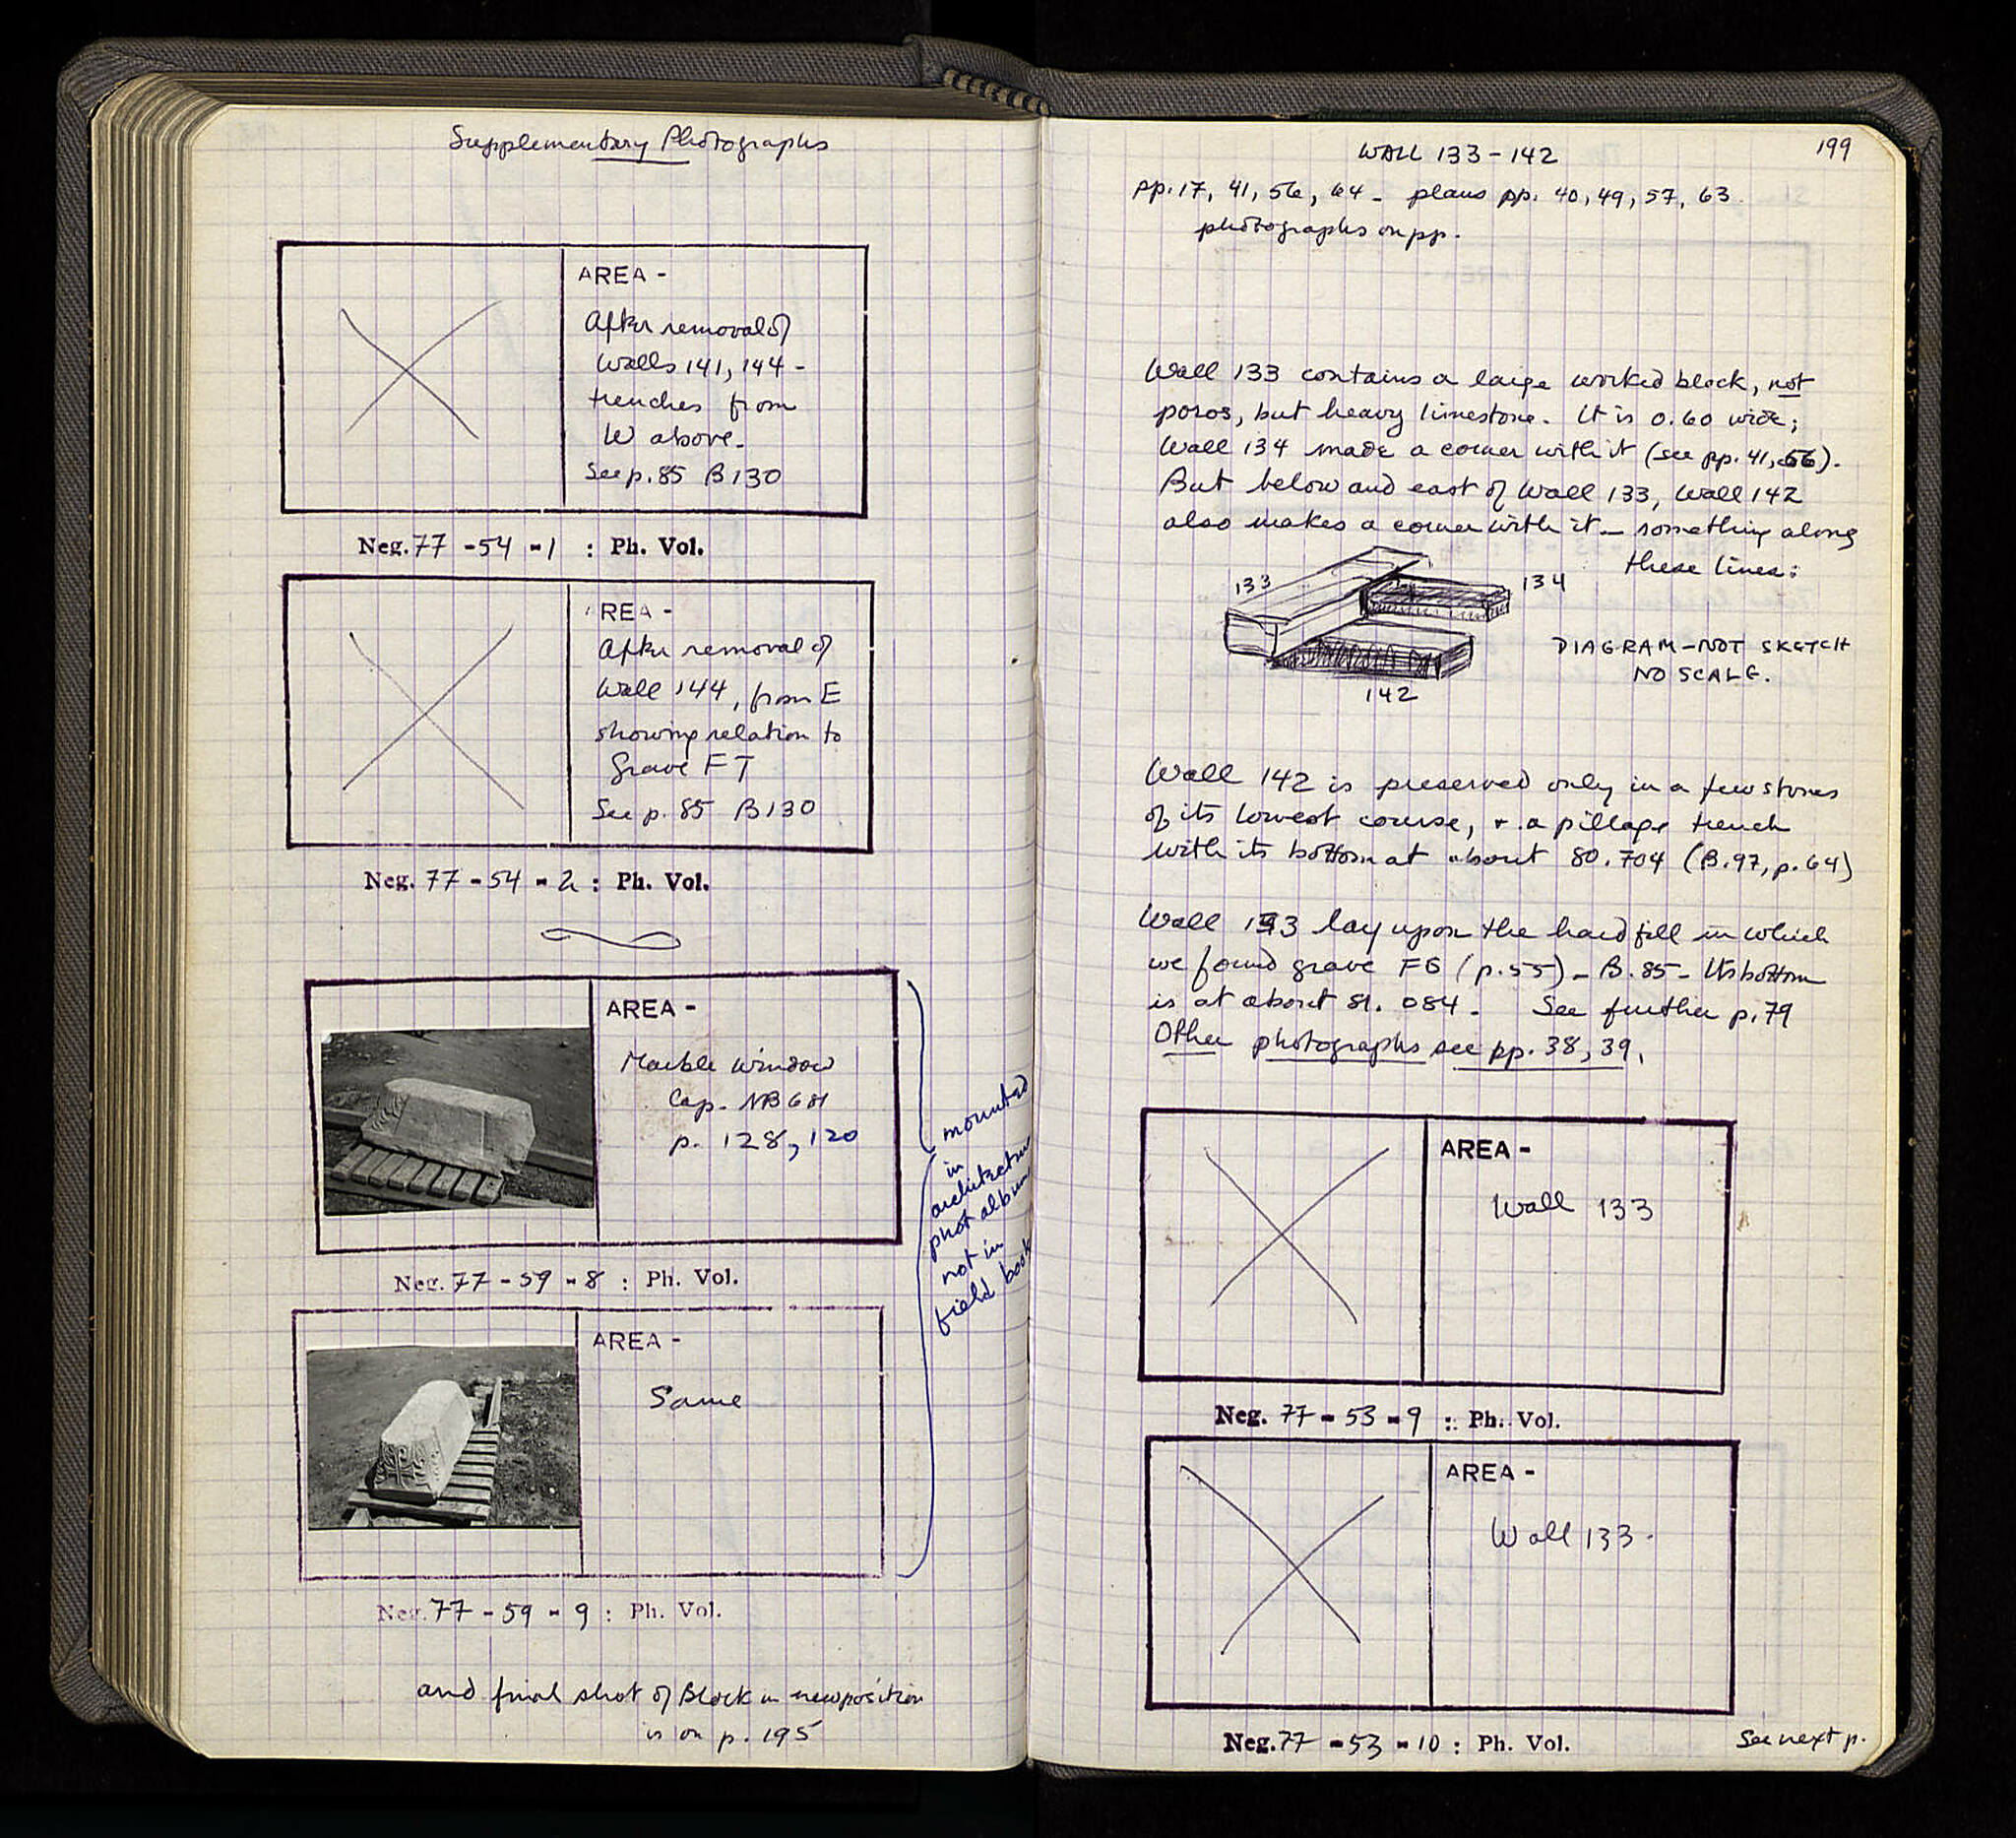 Supplementary Photographs
AREA -
After removal of
Walls 141, 144 -
trenches from
W above.
See p. 85 B130
Neg. 77 - 54 - 1 : Ph. Vol.
AREA -
After removal of
Wall 144, from E
showing relation to
Grave FT
See p. 85 B130
Neg. 77 - 54 - 2 : Ph. Vol.
AREA -
Marble Window
Cap. NB 681
p. 128, 120
Neg. 77 - 59 - 8 : Ph. Vol.
mounted
in
architecture
phot album
not in
field book
AREA -
Same
Neg. 77 - 59 - 9 : Ph. Vol.
and final shot of Block in new position
is on p. 195
199
WALL 133 - 142
pp. 17, 41, 56, 64 - plans pp. 40, 49, 57, 63.
photographs on pp.
Wall 133 contains a large worked block, not
poros, but heavy limestone. It is 0.60 wide;
Wall 134 made a corner with it (see pp. 41, 56).
But below and east of Wall 133, Wall 142
also makes a corner with it - something along
these lines:
133
134
142
DIAGRAM - NOT SKETCH
NO SCALE.
Wall 142 is preserved only in a few stones
of its lowest course, + a pillage trench
with its bottom at about 80.704 (B.97, p. 64)
Wall 133 lay upon the hard fill in which
we found grave FG (p. 55) - B. 85 - Its bottom
is at about 81.084 - See further p. 79
Other photographs see pp. 38, 39.
AREA -
Wall 133
Neg. 77 - 53 - 9 : Ph. Vol.
AREA -
Wall 133.
Neg. 77 - 53 - 10 : Ph. Vol.
See next p.